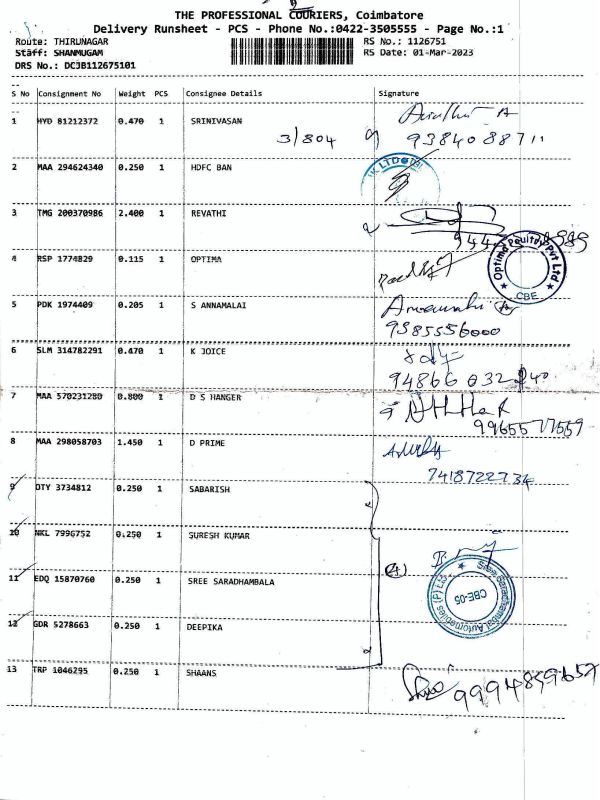 THE PROFESSIONAL COURIERS, Coimbatore
Delivery Runsheet - PCS - Phone No.:0422-3505555 - Page No.:1
Route: THIRUNAGAR RS No.: 1126751
Staff: SHANMUGAM RS Date: 01-Mar-2023
DRS No.: DCJB112675101
S No Consignment No Weight PCS Consignee Details Signature
1 HYD 81212372 0.470 1 SRINIVASAN
3/804 9384088711
2 MAA 294624340 0.250 1 HDFC BAN
3 TMG 200370986 2.400 1 REVATHI
4 RSP 1774829 0.115 1 OPTIMA
Optima Poultry Pvt Ltd
CBE
5 PDK 1974409 0.205 1 S ANNAMALAI
9385556000
6 SLM 314782291 0.470 1 K JOICE
7 MAA 570231280 0.800 1 D S HANGER
8 MAA 298058703 1.450 1 D PRIME
7418722734
9 DTY 3734812 0.250 1 SABARISH
10 NKL 7996752 0.250 1 SURESH KUMAR
11 EDQ 15870760 0.250 1 SREE SARADHAMBALA
(4)
CBE-05
12 GDR 5278663 0.250 1 DEEPIKA
13 TRP 1046295 0.250 1 SHAANS
9994859657